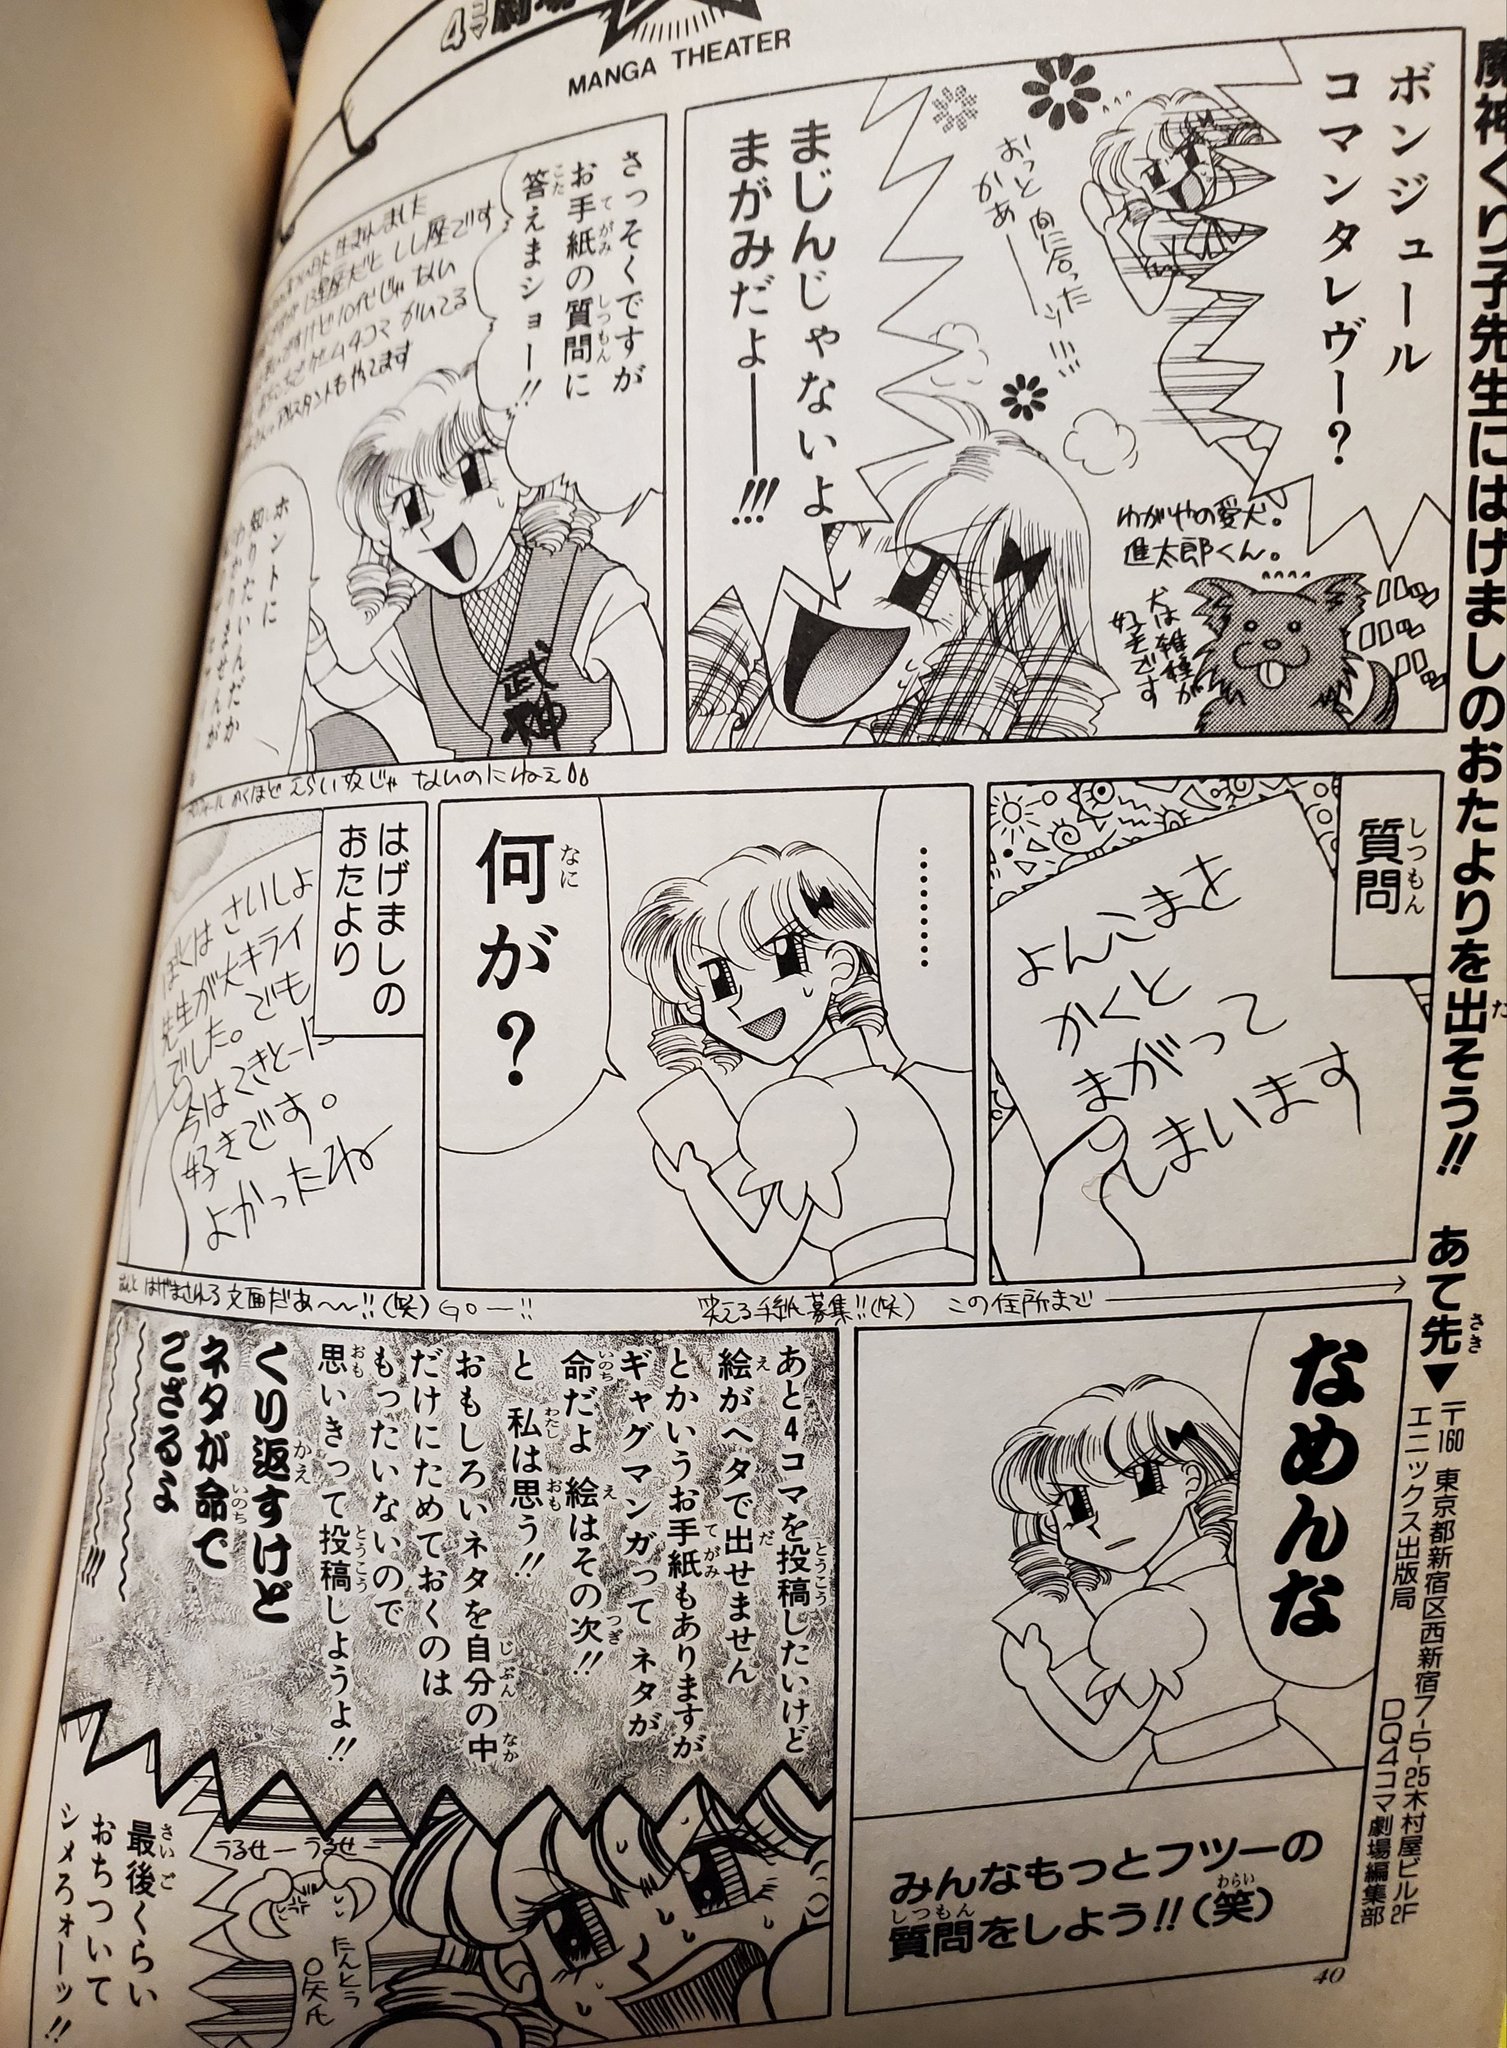 4コマ劇場
MANGA THEATER
魔神ぐり子先生にはげましのおたよりを出そう!!
あて先▼
〒160 東京都新宿区西新宿7-5-25木村屋ビル2F
エニックス出版局
DQ4コマ劇場編集部
ボンジュール
コマンタレヴー?
おっと間に合った
かあー
まじんじゃないよ
まがみだよーー!!!
わがやの愛犬。
進太郎くん。
犬は雑種が
好きです
さっそくですが
お手紙の質問に
答えまショー!!
生まれました
しし座です
10代じゃない
4コマ かいてる
アシスタントもやってます
武神
ホントに
知りたいんだか
わかりませんが
かくほど えらい奴じゃ ないのにねえ
質問
よんこまを
かくと
まがって
しまいます
……
何が?
はげましの
おたより
ぼくは さいしょ
先生が大キライ
でした。でも
今はてきとーに
好きです。
よかったね
はげまされる文面だあ〜〜!!(笑) GO—!!
笑える手紙募集!!(笑)
この住所まで
なめんな
みんなもっとフツーの
質問をしよう!!(笑)
あと4コマを投稿したいけど
絵がヘタで出せません
とかいうお手紙もありますが
ギャグマンガって ネタが
命だよ 絵はその次!!
と 私は思う!!
おもしろいネタを自分の中
だけにためておくのは
もったいないので
思いきって投稿しようよ!!
くり返すけど
ネタが命で
ござるよ
〜〜〜〜!!!
うるせー うるせー
たんとう
〇矢氏
最後くらい
おちついて
シメろォーッ!!
40